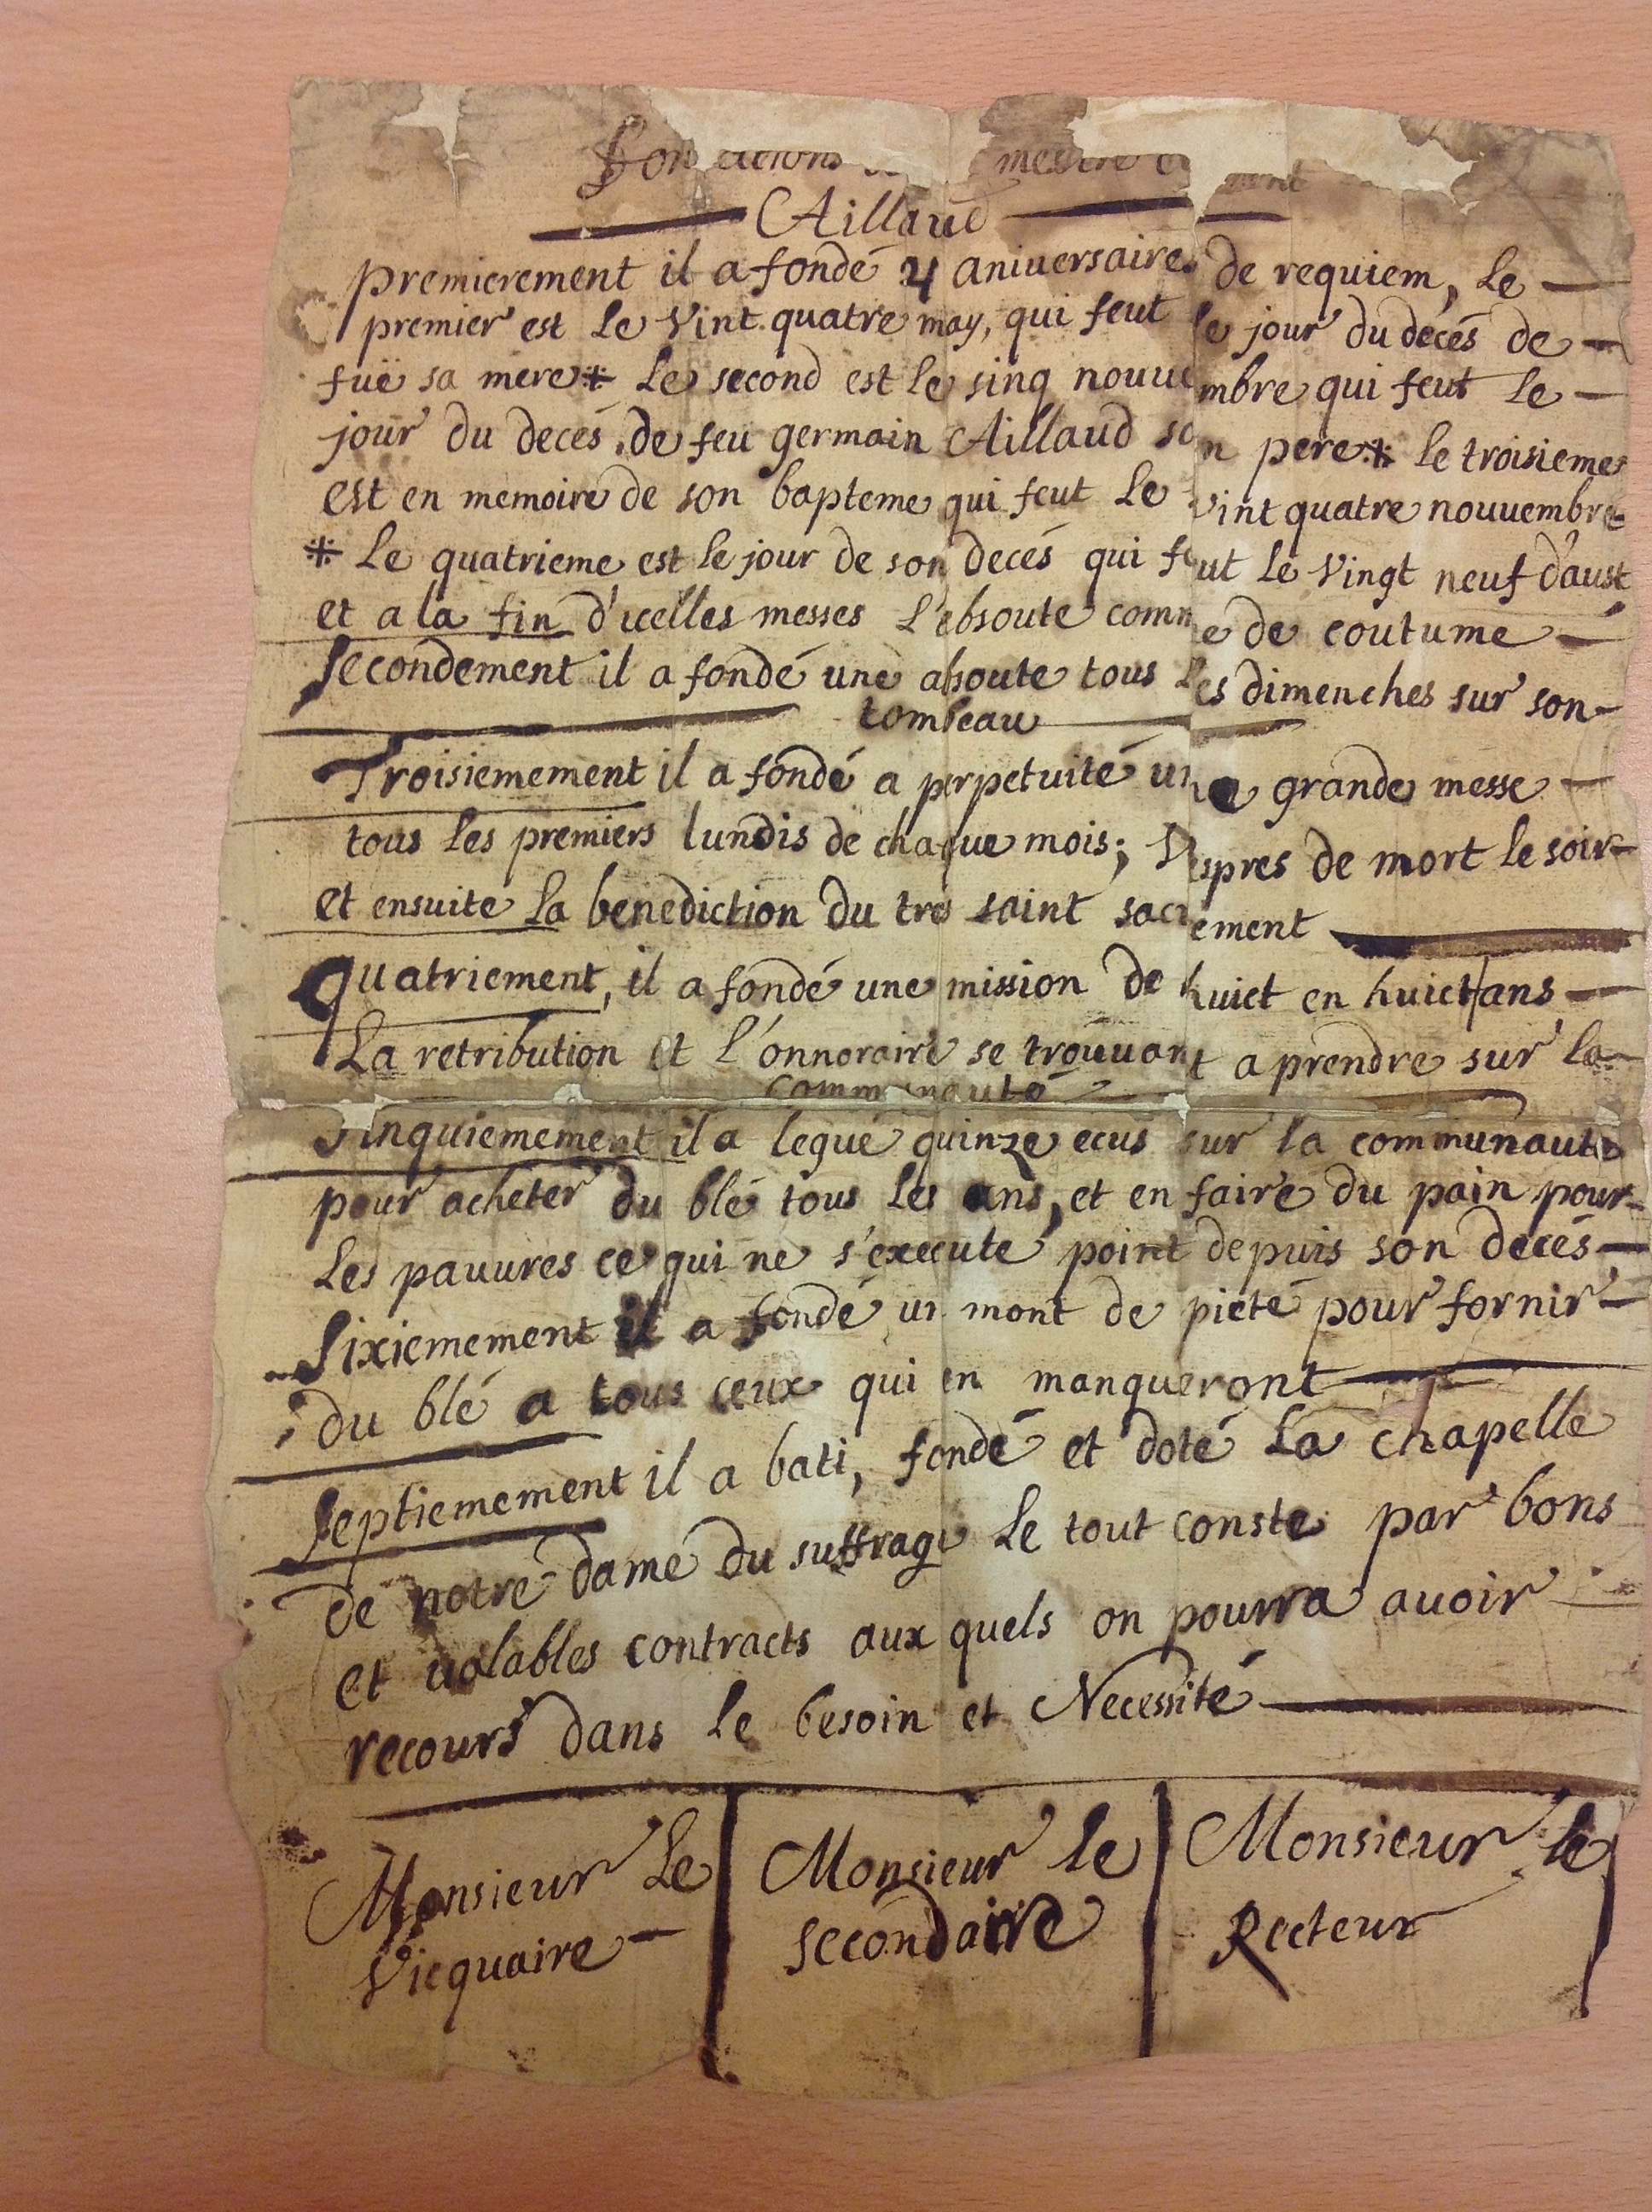 Fondations
Aillaud
premierement il a fondé 4 aniuersaires de requiem, Le
premier est Le Vint quatre may, qui feut le jour du decés de
fuë sa mere * Le second est le sinq nouuembre qui feut Le
jour du decés de feu germain Aillaud son pere * le troisieme
est en memoire de son bapteme qui feut Le vint quatre nouuembre
* Le quatrieme est le jour de son decés qui feut Le Vingt neuf d'aust
et a la fin d'icelles messes L'ebsoute comme de coutume
Secondement il a fondé une absoute tous Les dimenches sur son
tombeau
Troisiemement il a fondé a perpetuité une grande messe
tous Les premiers lundis de chaque mois; Vespres de mort le soir
et ensuite La benediction du tres saint sacrement
quatriement, il a fondé une mission de huict en huict ans
La retribution et l'onnoraire se trouuant a prendre sur la
communauté
Sinquiemement il a legué quinze ecus sur la communauté
pour acheter du blé tous Les ans, et en faire du pain pour
Les pauures ce qui ne s'execute point depuis son decés
Sixiemement il a fondé un mont de pieté pour fornir
du blé a tous ceux qui en manqueront
Septiemement il a bati, fondé et doté La chapelle
de notre dame du suffrage Le tout conste par bons
et ualables contracts aux quels on pourra auoir
recours dans le besoin et Necessité
Monsieur Le Vicquaire
Monsieur le secondaire
Monsieur le Recteur